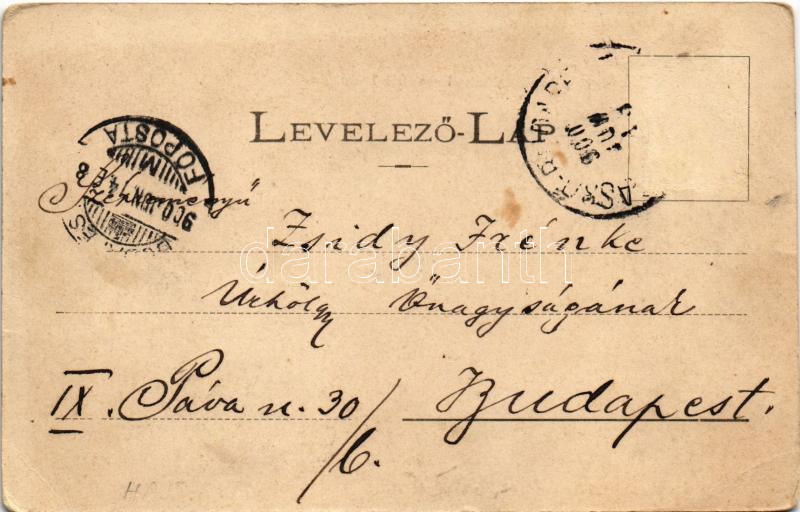 LEVELEZŐ-LAP
FŐPOSTA
900 JUN
900
JUN
Zsidy Irénke
Úrhölgy Őnagyságának
IX. Páva u. 30/6. Budapest.
darabanth